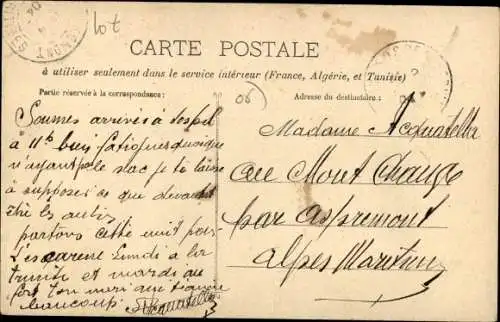 lot
CARTE POSTALE
à utiliser seulement dans le service intérieur (France, Algérie, et Tunisie)
Partie réservée à la correspondance:
Adresse du destinataire:
06
Sommes arrivés à Sospel
à 11h bien fatigués quoique
n'ayant pas le sac je te laisse
à supposer ce que devaient
être les autres
partons cette nuit pour
Lundi à
et mardi au
fort ton mari qui t'aime
beaucoup
Madame Acquatella
au Mont Chauve
par Aspremont
Alpes Maritimes